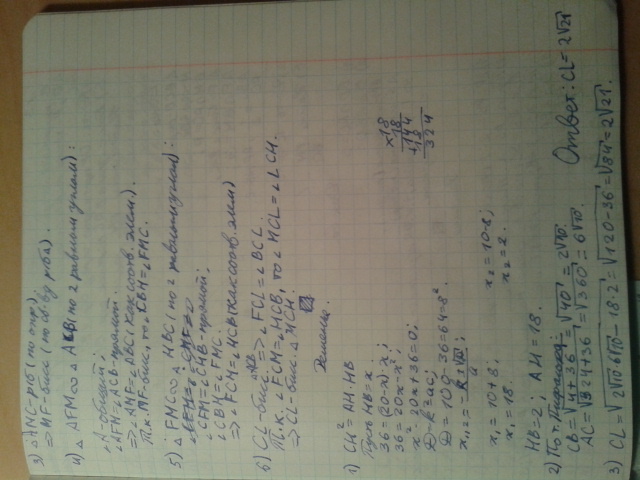 3) △ANC-р/б (по опр.)
=> MF-бисс (по св-ву р/ба).
4) △AFM ∞ △ACB (по 2 равным углам):
∠A-общий;
∠AFM=∠ACB-прямой.
=> ∠AMF=∠ABC (как соотв. элем).
Т.к. MF-бис., то ∠CBH=∠FMC.
5) △FMC ∞ △HBC (по 2 равным углам):
∠CFM=∠CHB-прямой;
∠CBH=∠FMC.
=> ∠FCM=∠HCB (как соотв. элем)
6) CL-бис. => ∠FCL=∠BCL.
Т.к. ∠FCM=∠HCB, то ∠MCL=∠LCH.
=> CL-бис. △MCH.
Решение.
1) CH²=AH·HB
Пусть HB=x.
36=(20-x)·x;
36=20x-x²;
x²-20x+36=0;
D=100-36=64=8²
x₁=10+8; x₂=10-8;
x₁=18. x₂=2.
×18
18
+144
18
324
HB=2; AH=18.
2) По т. Пифагора:
CB=√4+36=√40=2√10.
AC=√324+36=√360=6√10
3) CL=√2√10·6√10-18·2=√120-36=√84=2√21.
Ответ: CL=2√21